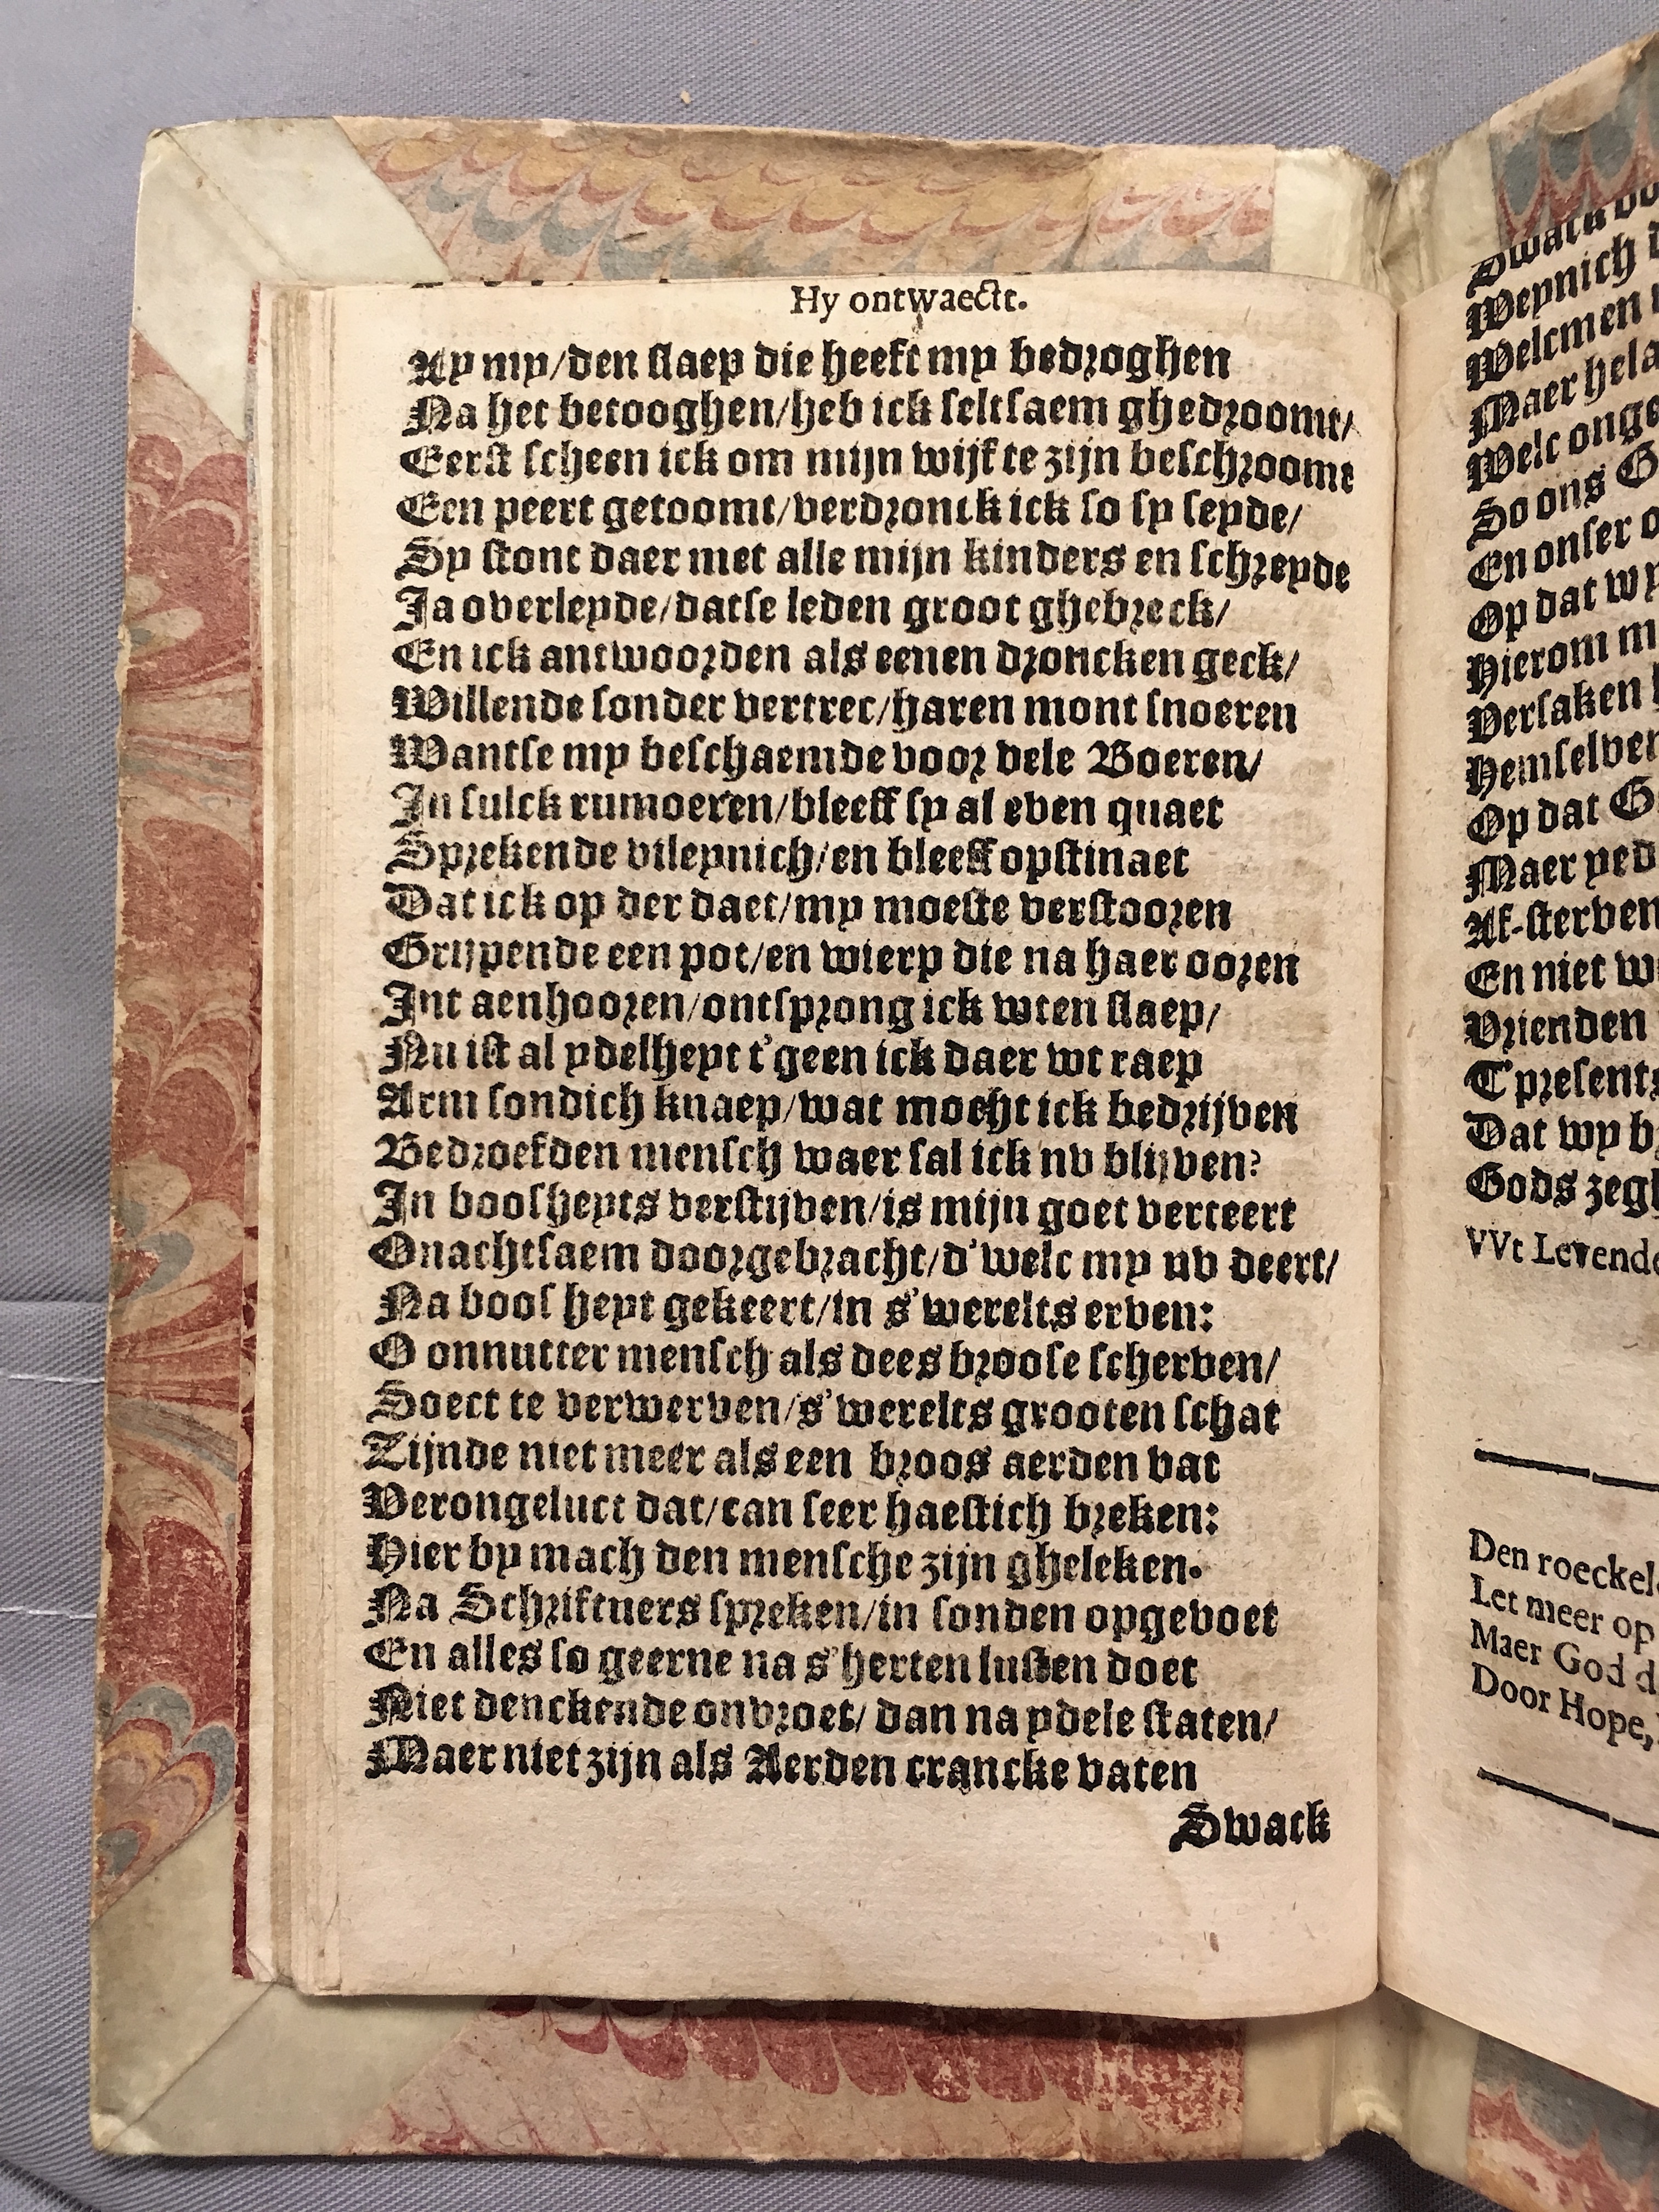 Hy ontwaectt.
Ay my/den slaep die heeft my bedroghen
Na het betooghen/heb ick seltsaem ghedroomt/
Eerst scheen ick om mijn wijf te zijn beschroomt
Een peert getoomt/verdronck ick so sy seyde/
Sy stont daer met alle mijn kinders en schreyde
Ja overleyde/datse leden groot ghebreck/
En ick antwoorden als eenen droncken geck/
Willende sonder vertrec/haren mont snoeren
Wantse my beschaemde voor vele Boeren/
In sulck rumoeren/bleeff sy al even quaet
Sprekende vileynich/en bleeff opstinaet
Dat ick op der daet/my moeste verstooren
Grijpende een pot/en wierp die na haer ooren
Int aenhooren/ontsprong ick wten slaep/
Nu ist al ydelheyt t'geen ick daer wt raep
Arm sondich knaep/wat mocht ick bedrijven
Bedroefden mensch waer sal ick nv blijven?
In boosheyts verstijven/is mijn goet verteert
Onachtsaem doorgebracht/d'welc my nv deert/
Na boosheyt gekeert/in s'werelts erven:
O onnutter mensch als dees broose scherven/
Soect te verwerven/s'werelts grooten schat
Zijnde niet meer als een broos aerden vat
Verongeluct dat/can seer haestich breken:
Hier by mach den mensche zijn gheleken.
Na Schriftuers spreken/in sonden opgevoet
En alles so geerne na s'herten lusten doet
Niet denckende onvroet/dan na ydele staten/
Maer niet zijn als Aerden crancke vaten
Swack
Weynich
Welcmen
Maer
Welc
So ons
En onser
Op dat
Hierom
Versaken
Hemselven
Op dat
Maer
Af-sterven
En niet
Vrienden
T'presents
Dat wy
Gods
VVt Levende
Den roeckel
Let meer op
Maer God d
Door Hope,